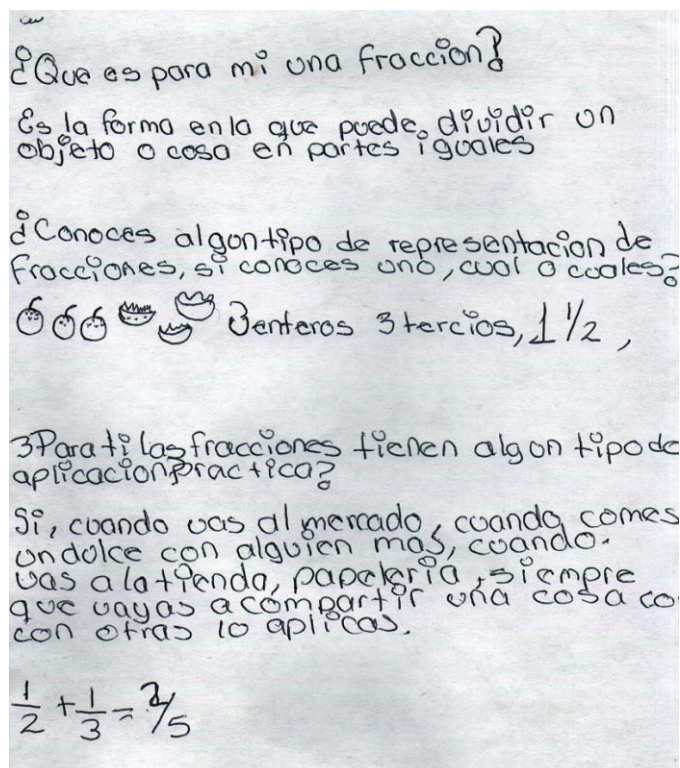 ¿Que es para mi una fraccion?
Es la forma en la que puede dividir un
objeto o cosa en partes iguales
¿Conoces algun tipo de representacion de
fracciones, si conoces uno, cual o cuales?
3 enteros 3 tercios, 1 1/2,
3 Para ti las fracciones tienen algun tipo de
aplicacion practica?
Si, cuando vas al mercado, cuando comes
un dolce con alguien mas, cuando.
vas a la tienda, papeleria, siempre
que vayas a compartir una cosa co
con otras lo aplicas.
1/2 + 1/3 = 2/5